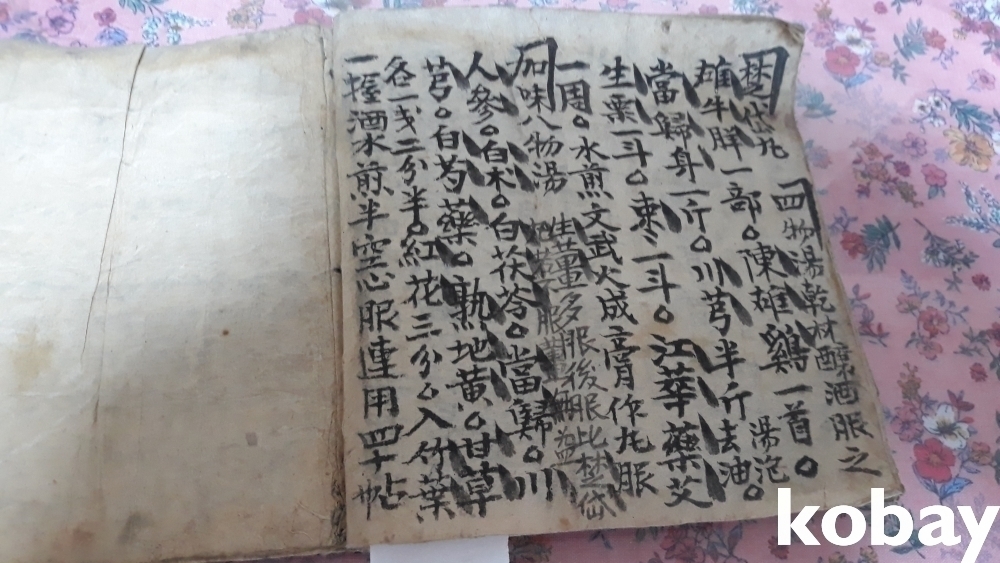 四物湯乾材釀酒服之
埜岱丸
雄牛胖一部。陳雄鷄一首。
當歸身一斤。川芎半斤去油。湯泡
生栗一斗。棗ミ一斗。江華藥艾
一周。水煎文武火成膏作丸服
生薑多服後服此埜岱
加味八物湯 服無益
人參。白朮。白茯苓。當歸。川
芎。白芍藥。熟地黃。甘草
各一戔二分半。紅花三分。入竹葉
一握酒水煎半空心服連用四十帖
kobay